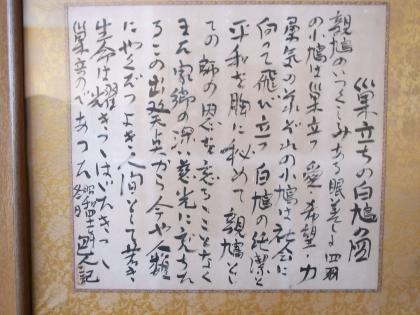 巣立ちの白鳩の図
親鳩のいつくしみある眼差しに四羽
の小鳩は巣立つ 愛・希望・力
勇気の それぞれの小鳩は社会に
向って飛び立つ 白鳩の純潔と
平和を胸に秘めて 親鳩とし
ての師の恩を忘るゝことなく
又家郷の深い慈光に
るこの出発点から今や人類
にやくだつよき人間として若き
生命は耀きつゝはばたきつゝ
巣立つのであった